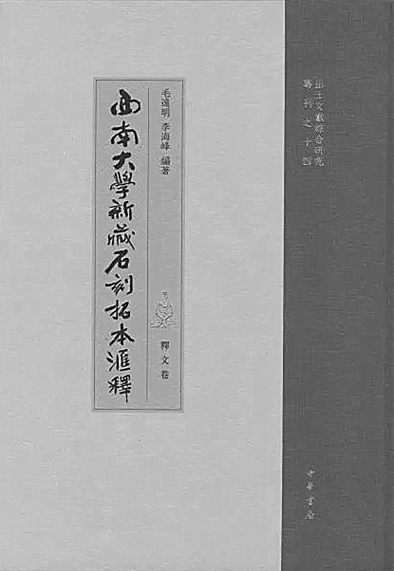 出土文獻綜合研究
專刊之十四
毛遠明 李海峰 編著
釋文卷
西南大學新藏石刻拓本滙釋
中華書局